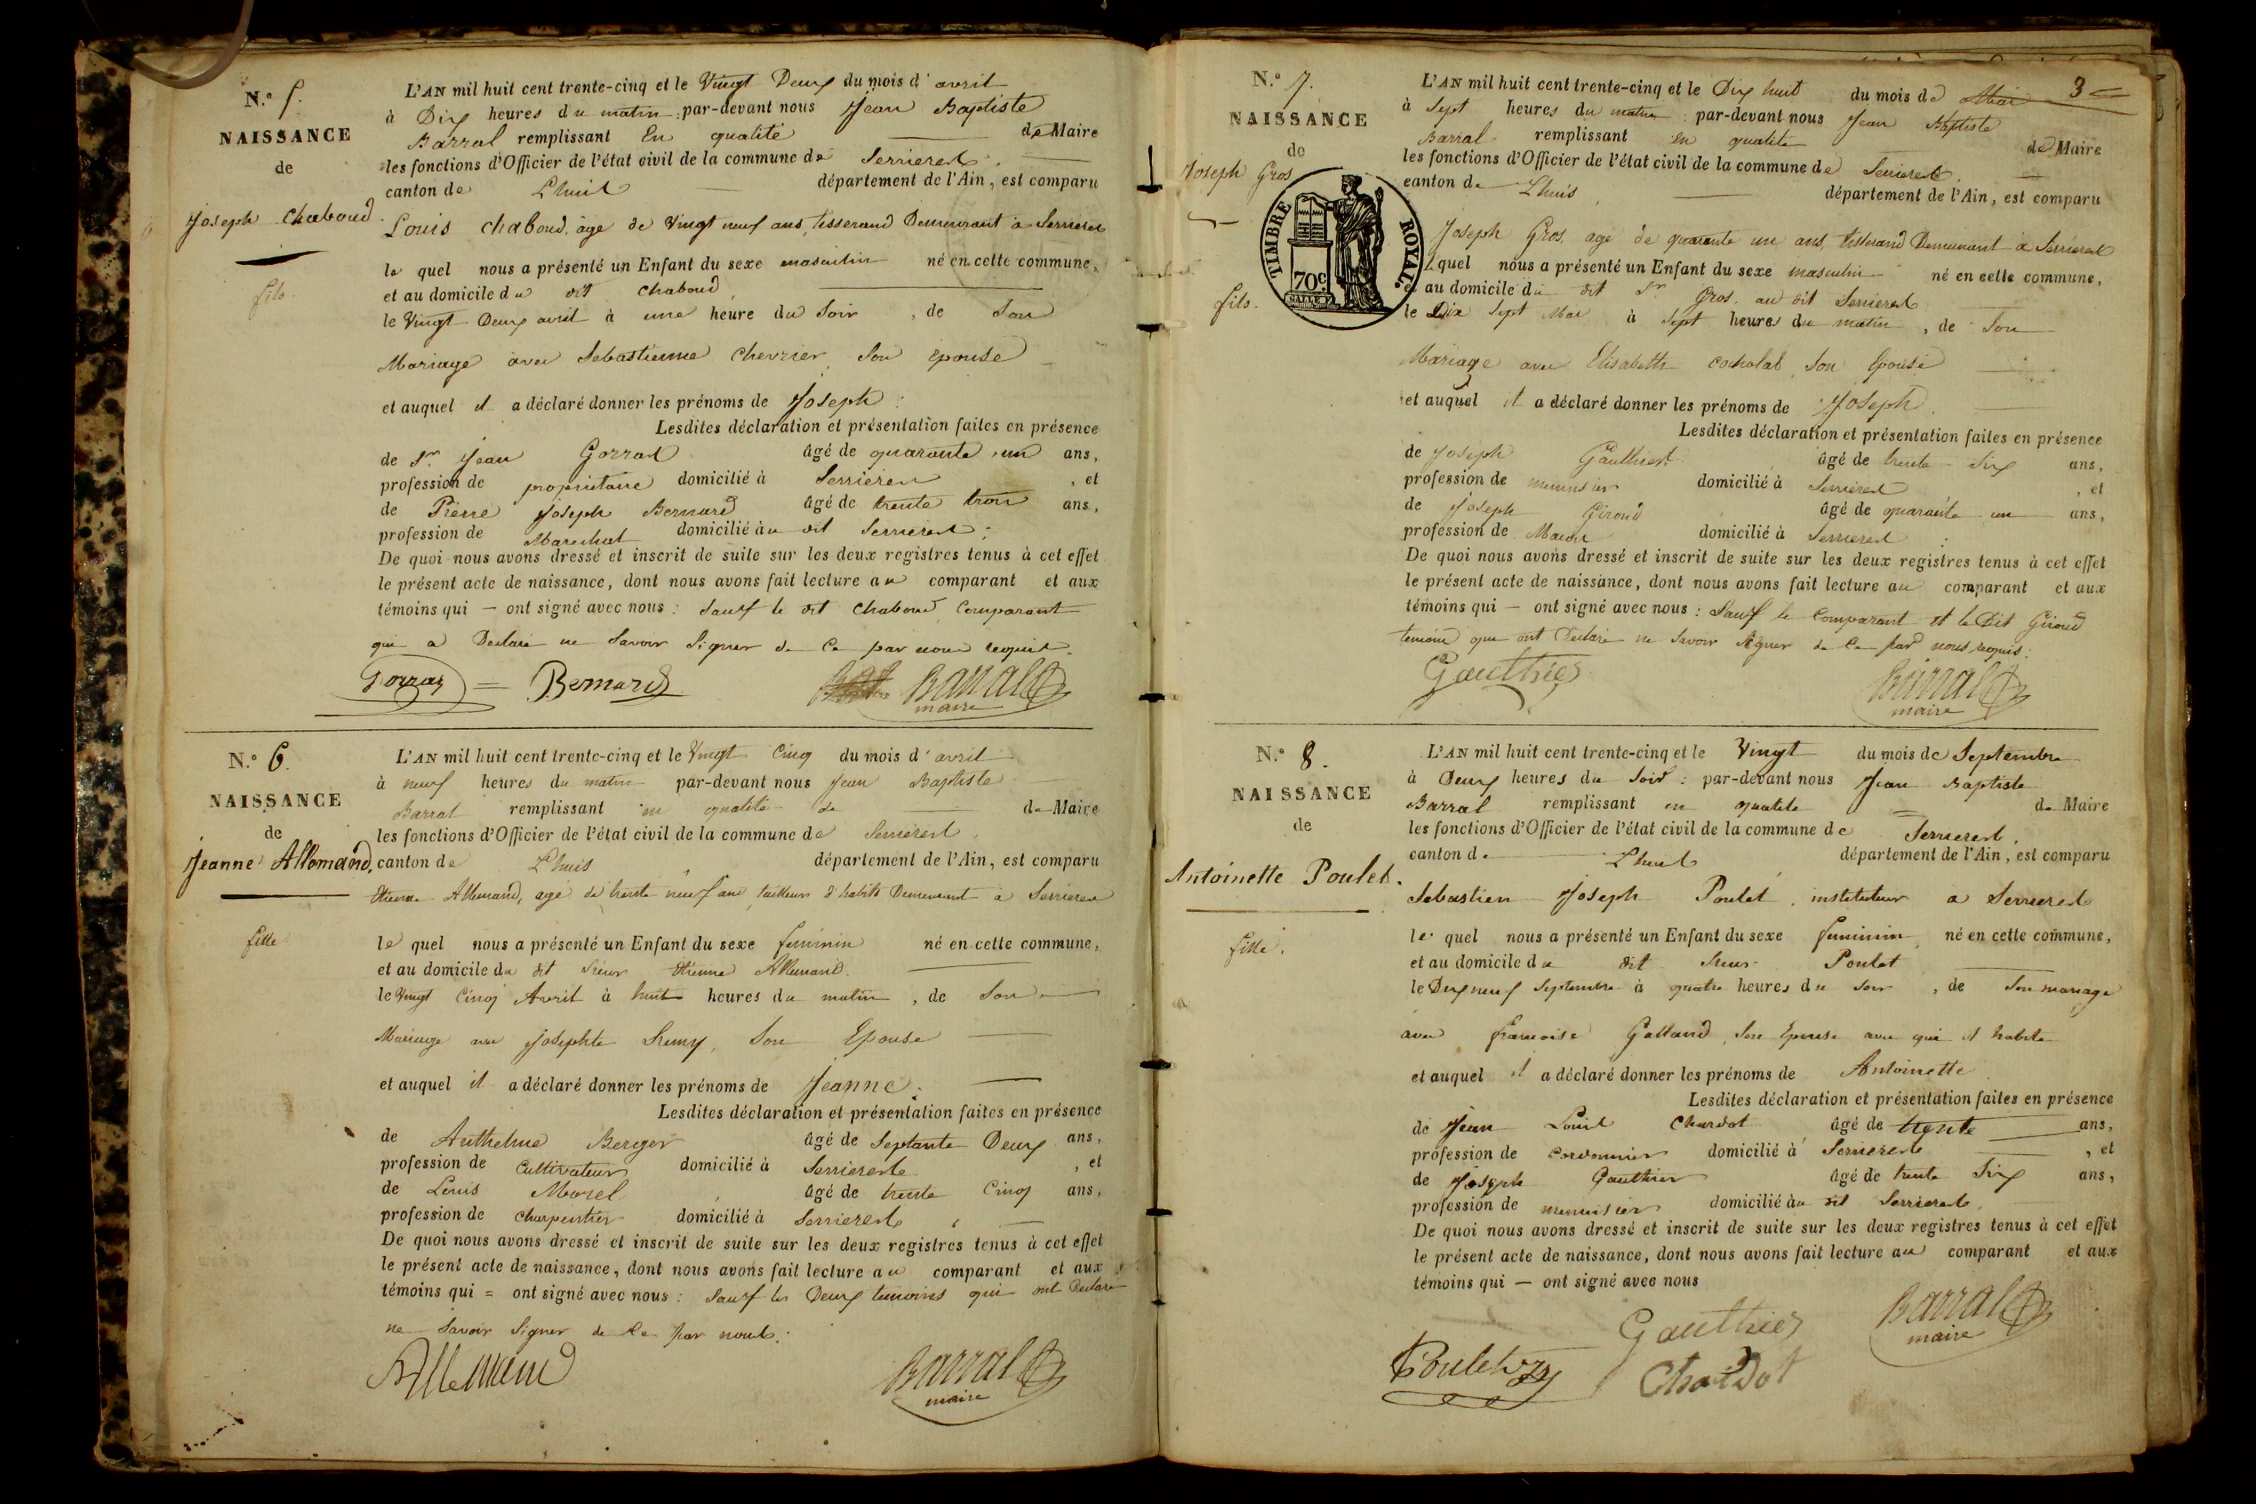 N.º 5.
NAISSANCE
de
Joseph Chaboud.
fils.
L'AN mil huit cent trente-cinq et le Vingt Deux du mois d'avril
à Dix heures du matin; par-devant nous Jean Baptiste
Barral remplissant En qualité de Maire
les fonctions d'Officier de l'état civil de la commune de Serrieres.
canton de L'huis département de l'Ain, est comparu
Louis chaboud, âgé de Vingt neuf ans, tisserand Demeurant à Serrieres
le quel nous a présenté un Enfant du sexe masculin né en cette commune,
et au domicile du dit chaboud,
le Vingt Deux avril à une heure du Soir, de Son
Mariage avec Sebastienne Chevrier, Son épouse
et auquel il a déclaré donner les prénoms de Joseph:
Lesdites déclaration et présentation faites en présence
de Sr. Jean Gorras âgé de quarante un ans,
profession de propriétaire domicilié à Serrieres, et
de Pierre Joseph Bernard âgé de trente trois ans,
profession de Marechal domicilié au dit Serrieres;
De quoi nous avons dressé et inscrit de suite sur les deux registres tenus à cet effet
le présent acte de naissance, dont nous avons fait lecture au comparant et aux
témoins qui — ont signé avec nous: Sauf le dit chaboud, Comparant
qui a Declaré ne Savoir Signer de Ce par nous requis.
Gorras = Bernard Barral
maire
N.º 6.
NAISSANCE
de
Jeanne Allemand.
fille
L'AN mil huit cent trente-cinq et le Vingt Cinq du mois d'avril
à neuf heures du matin par-devant nous Jean Baptiste
Barral remplissant en qualité de de Maire
les fonctions d'Officier de l'état civil de la commune de Serrieres.
canton de L'huis département de l'Ain, est comparu
Etienne Allemand, agé de trente neuf ans, tailleur d'habits Demeurant à Serrieres
le quel nous a présenté un Enfant du sexe feminin né en cette commune,
et au domicile du dit Sieur Etienne Allemand.
le Vingt Cinq Avril à huit heures du matin, de Son
Mariage avec Josephte Remy, Son Epouse
et auquel il a déclaré donner les prénoms de Jeanne:
Lesdites déclaration et présentation faites en présence
de Anthelme Berger âgé de Septante Deux ans,
profession de Cultivateur domicilié à Serrieres, et
de Louis Morel âgé de trente Cinq ans,
profession de charpentier domicilié à Serrieres,
De quoi nous avons dressé et inscrit de suite sur les deux registres tenus à cet effet
le présent acte de naissance, dont nous avons fait lecture au comparant et aux
témoins qui = ont signé avec nous: Sauf les Deux temoins qui ont Declaré
ne Savoir Signer de Ce par nous.
Allemand Barral
maire
3
N.º 7.
NAISSANCE
de
Joseph Gros
fils.
TIMBRE ROYAL
70c
L'AN mil huit cent trente-cinq et le Dix huit du mois de Mai
à Sept heures du matin: par-devant nous Jean Baptiste
Barral remplissant en qualité de Maire
les fonctions d'Officier de l'état civil de la commune de Serrieres.
canton de L'huis, département de l'Ain, est comparu
Joseph Gros, agé de quarante un ans, tisserand Demeurant à Serrieres
quel nous a présenté un Enfant du sexe masculin né en cette commune,
au domicile du dit Sr. Gros. au dit Serrieres
le Dix Sept Mai à Sept heures du matin, de Son
Mariage avec Elisabeth Cocholat, Son Epouse
et auquel il a déclaré donner les prénoms de Joseph.
Lesdites déclaration et présentation faites en présence
de Joseph Gauthier âgé de trente Six ans,
profession de menuisier domicilié à Serrieres, et
de Joseph Giroud âgé de quarante un ans,
profession de Macon domicilié à Serrieres
De quoi nous avons dressé et inscrit de suite sur les deux registres tenus à cet effet
le présent acte de naissance, dont nous avons fait lecture au comparant et aux
témoins qui — ont signé avec nous: Sauf le Comparant et le Dit Giroud
temoin qui ont Declaré ne Savoir Signer de Ce par nous requis:
Gauthier Barral
maire
N.º 8.
NAISSANCE
de
Antoinette Poulet.
fille.
L'AN mil huit cent trente-cinq et le Vingt du mois de Septembre
à Deux heures du Soir: par-devant nous Jean Baptiste
Barral remplissant en qualité de Maire
les fonctions d'Officier de l'état civil de la commune de Serrieres,
canton de L'huis département de l'Ain, est comparu
Sebastien Joseph Poulet, instituteur a Serrieres
le quel nous a présenté un Enfant du sexe feminin, né en cette commune,
et au domicile du dit Sieur Poulet
le Dix neuf Septembre à quatre heures du Soir, de Son mariage
avec francoise Galland, Son Epouse avec qui il habite
et auquel il a déclaré donner les prénoms de Antoinette
Lesdites déclaration et présentation faites en présence
de Jean Louis Chardot âgé de trente ans,
profession de cordonnier domicilié à Serrieres, et
de Joseph Gauthier âgé de trente Six ans,
profession de menuisier domicilié au dit Serrieres,
De quoi nous avons dressé et inscrit de suite sur les deux registres tenus à cet effet
le présent acte de naissance, dont nous avons fait lecture au comparant et aux
témoins qui — ont signé avec nous
Gauthier Barral
maire
Poulet Chardot